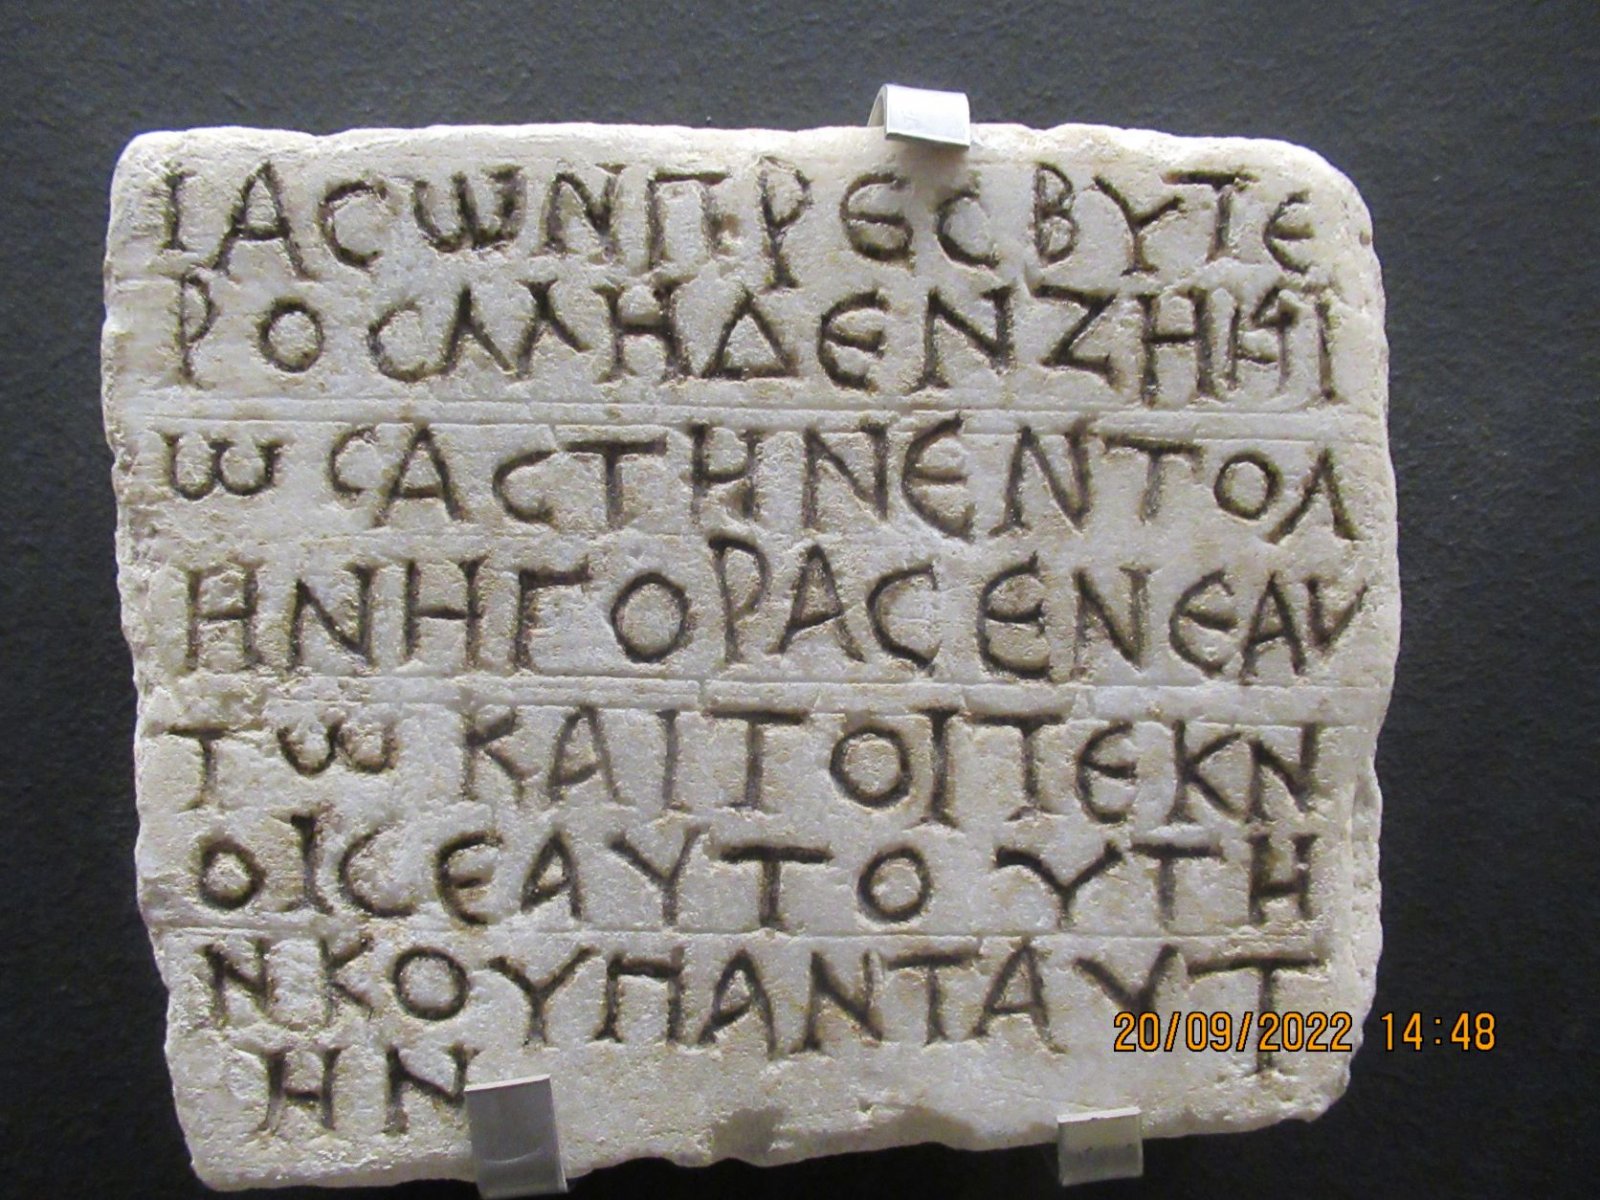 ΙΑCωΝΠΡΕCΒΥΤΕ
ΡΟCΜΗΔΕΝΖΗΜΙ
ωCΑCΤΗΝΕΝΤΟΛ
ΗΝΗΓΟΡΑCΕΝΕΑΥ
Τω ΚΑΙΤΟΙΤΕΚΝ
ΟΙCΕΑΥΤΟΥΤΗ
ΝΚΟΥΠΑΝΤΑΥΤ
ΗΝ
20/09/2022 14:48